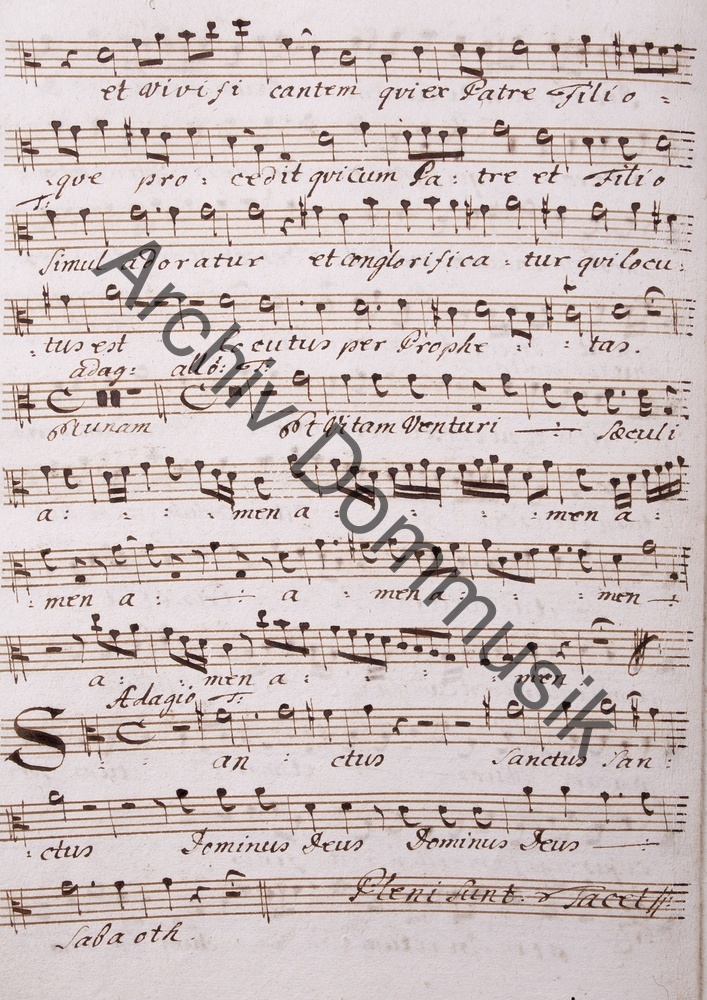 et vivifi cantem qui ex Patre Filio =
- que pro - cedit qui cum Pa - tre et Filio
T:
Simul adoratur et conglorifica - tur qui locu -
- tus est locutus per Prophe - - tas.
adag: allo: T:
Et unam Et Vitam Venturi Sæculi
a - - - men a - - - men a -
- men a - - - a - men a - - - men
a - - men a - - - men
Adagio T:
San - ctus Sanctus San -
- ctus Dominus Deus Dominus Deus
Sabaoth Pleni Sunt. Tacet
Archiv Dommusik